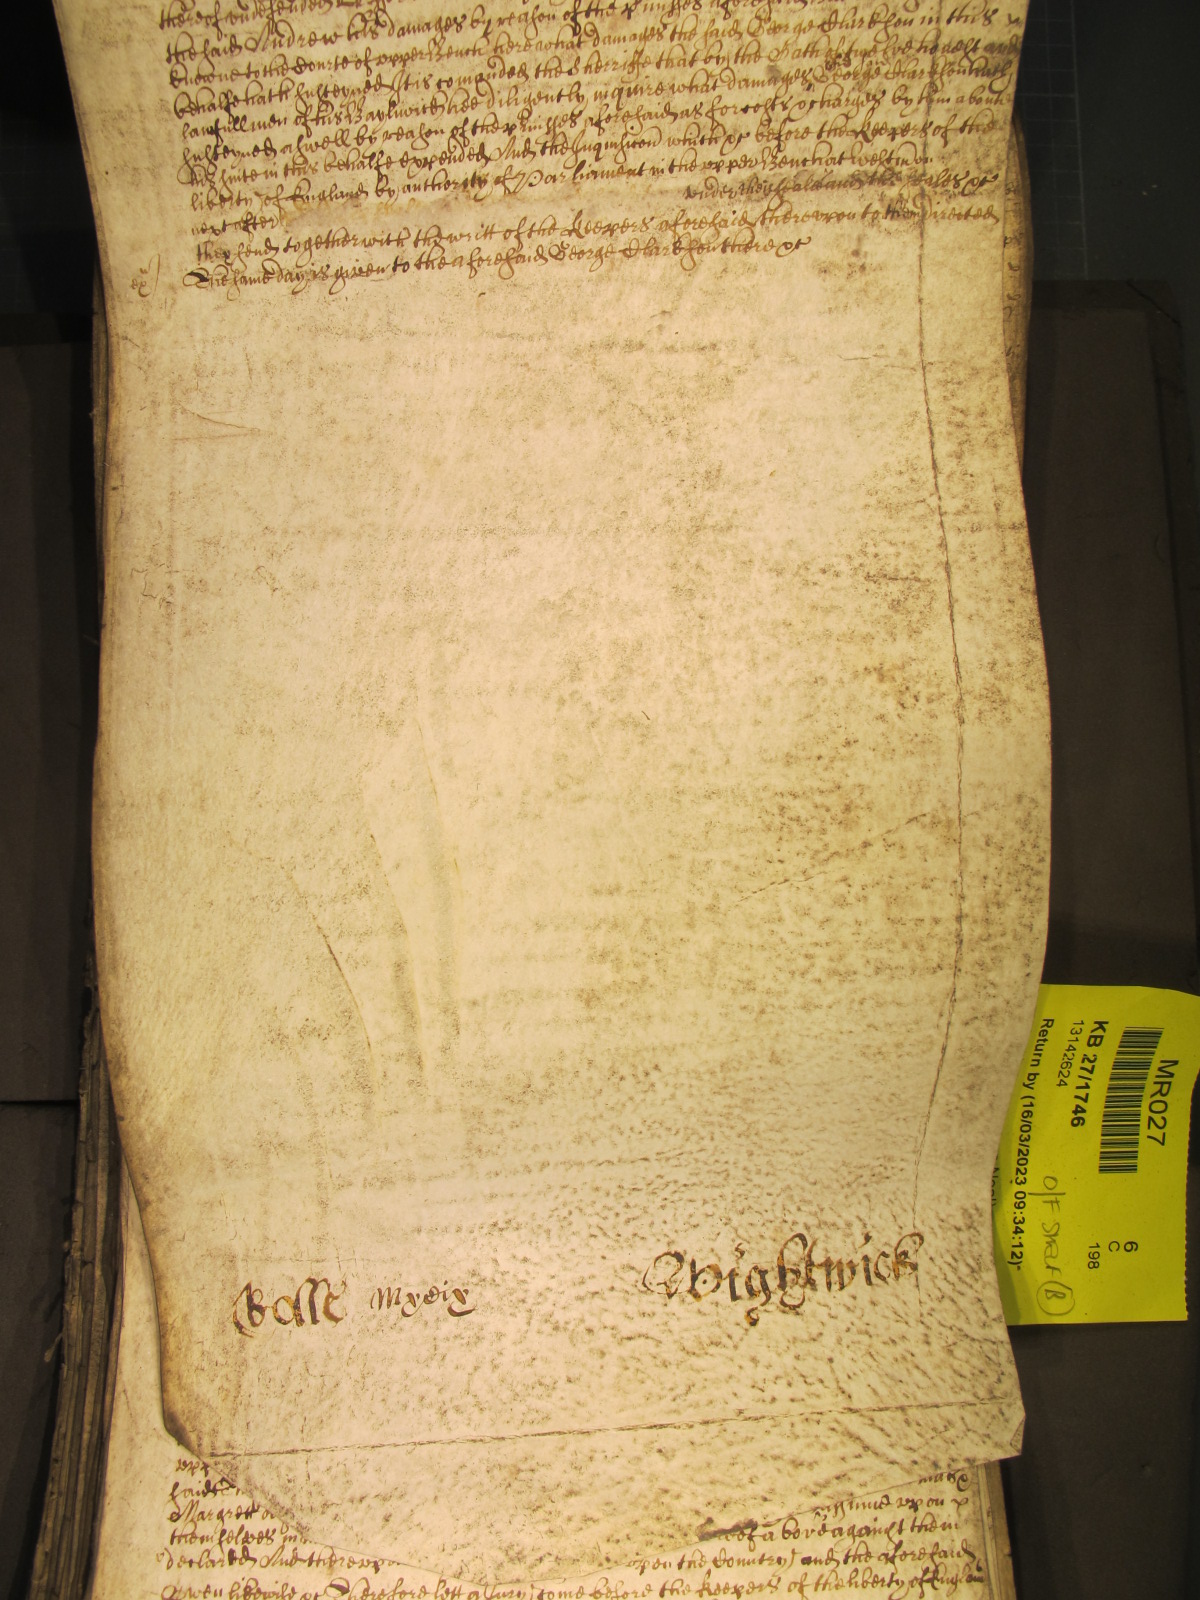 thereof undefended
the said Andrew his damages by reason of the pmisses aforesaid
knowne to the Courte of upper Bench here what damages the said George Clarkson in this
behalfe hath susteyned It is comanded the Sherriffe that by the Oath of twelve honest and
lawfull men of his Bayliwick hee diligently inquire what damages the said George Clarkson hath
susteyned aswell by reason of the pmisses aforesaid as for costs & charges by him about
his suite in this behalfe expended And the Inquisicon which &c before the Keepers of the
liberty of England by authority of Parliament in the upper Bench at Westm on
next after under the seale and the seales &c
they send together with the writt of the Keepers aforesaid thereupon to them directed
The same day is given to the aforesaid George Clarkson there &c
Rolle Mxcix
Wightwick
said
Margrett
upon
themselves in
above against them
declared And thereupon
upon the Country and the aforesaid
Owen likewise &c Therefore lett a Jury come before the Keepers of the liberty of England
MR027
KB 27/1746
13142624
Return by (16/03/2023 09:34:12)-
6
C
198
O/F SHELF (B)